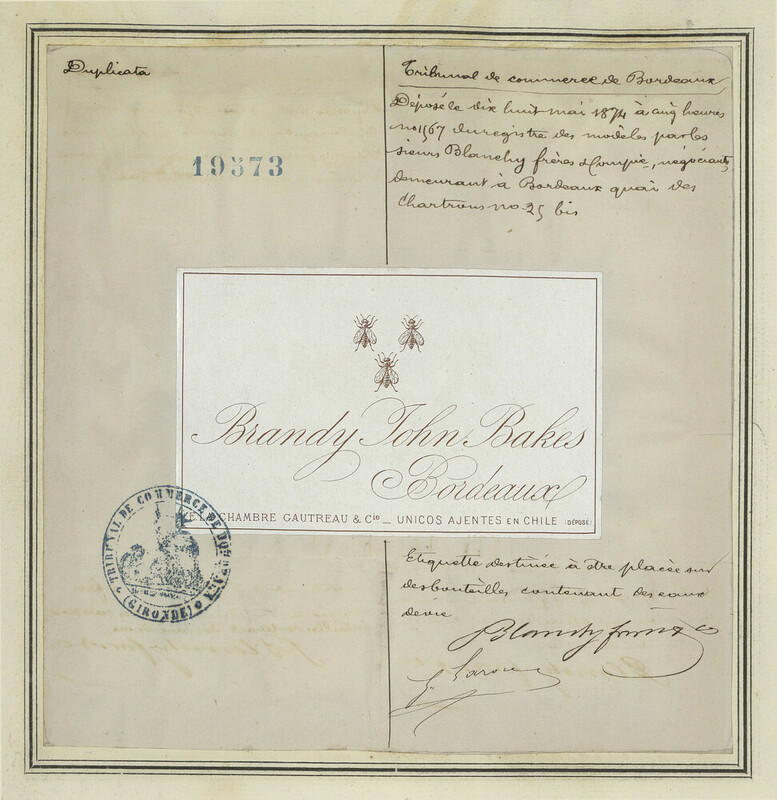 Duplicata
19573
Tribunal de commerce de Bordeaux
Déposé le dix huit mai 1874 à cinq heures
no 1567 du registre des modèles par les
sieurs Blanchy frères & Compie, négociants,
demeurant à Bordeaux quai des
Chartrons no 25 bis
Brandy John Bakes
Bordeaux
CHAMBRE GAUTREAU & Cie _ UNICOS AJENTES EN CHILE (DÉPOSÉ)
TRIBUNAL DE COMMERCE DE BORDEAUX
(GIRONDE)
Etiquette destinée à être placée sur
des bouteilles contenant des eaux
de vie
Blanchy frères & Co